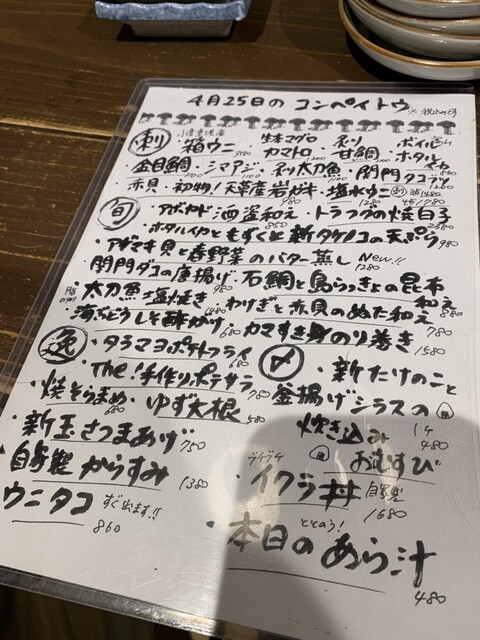 4月25日の コンペイトウ ※税込みです
刺 箱ウニ 生本マグロ カマトロ 炙り 甘鯛 ボイル ホタルイカ
金目鯛・シマアジ・炙り太刀魚・関門タコテツ
・赤貝・初物!天草産岩ガキ・塩水ウニ
旬 ・アボカド酒盗和え・トラフグの焼白子
・ホタルイカともずくと新タケノコの天ぷら 980
・アゲマキ貝と春野菜のバター蒸し New!! 1280
・関門ダコの唐揚げ・石鯛と島らっきょの昆布和え 880
太刀魚塩焼き 1480 ・わけぎと赤貝のぬた和え 780
・海ぶどうしそ酢がけ 680 ・カマすき身のり巻き 1580
逸 ・タラマヨポテトフライ 680
・The!手作りポテサラ 780
・焼そらまめ 680 ・ゆず大根 580
・新玉さつまあげ 750
・自家製からすみ 1380
ウニタコ すぐ出ます!! 860
〆 ・新たけのこと
釜揚げシラスの
焼き込み 1ケ 480
おむすび
・ブチブチ イクラ丼 自家製 1680
・ととのう! 本日のあら汁 480